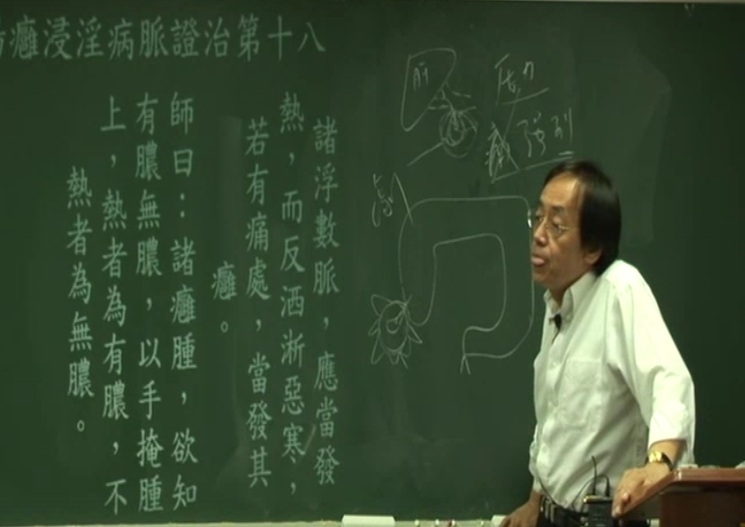 癰浸淫病脈證治第十八
諸浮數脈，應當發
熱，而反洒淅惡寒，
若有痛處，當發其
癰。
師曰：諸癰腫，欲知
有膿無膿，以手掩腫
上，熱者為有膿，不
熱者為無膿。